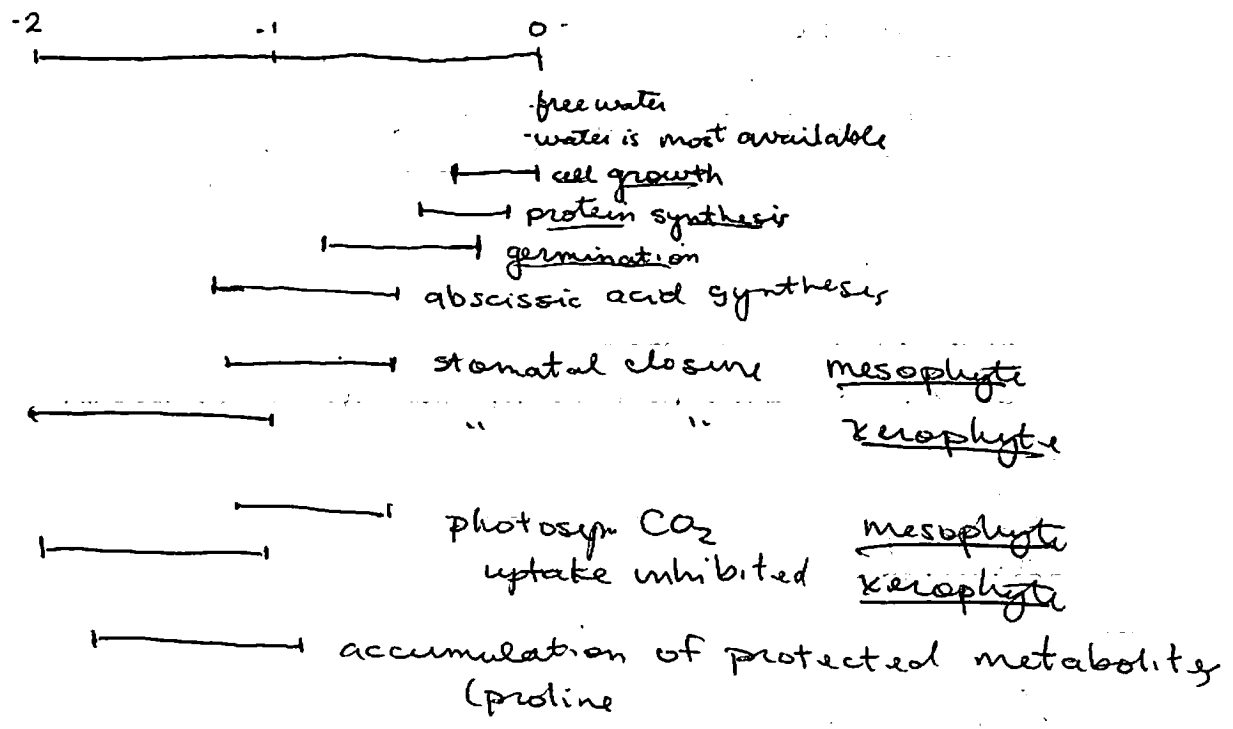 -2 -1 0
-free water
-water is most available
cell growth
protein synthesis
germination
abscissic acid synthesis
stomatal closure mesophyte
" " xerophyte
photosyn CO2 mesophyte
uptake inhibited xerophyte
accumulation of protected metabolites
(proline